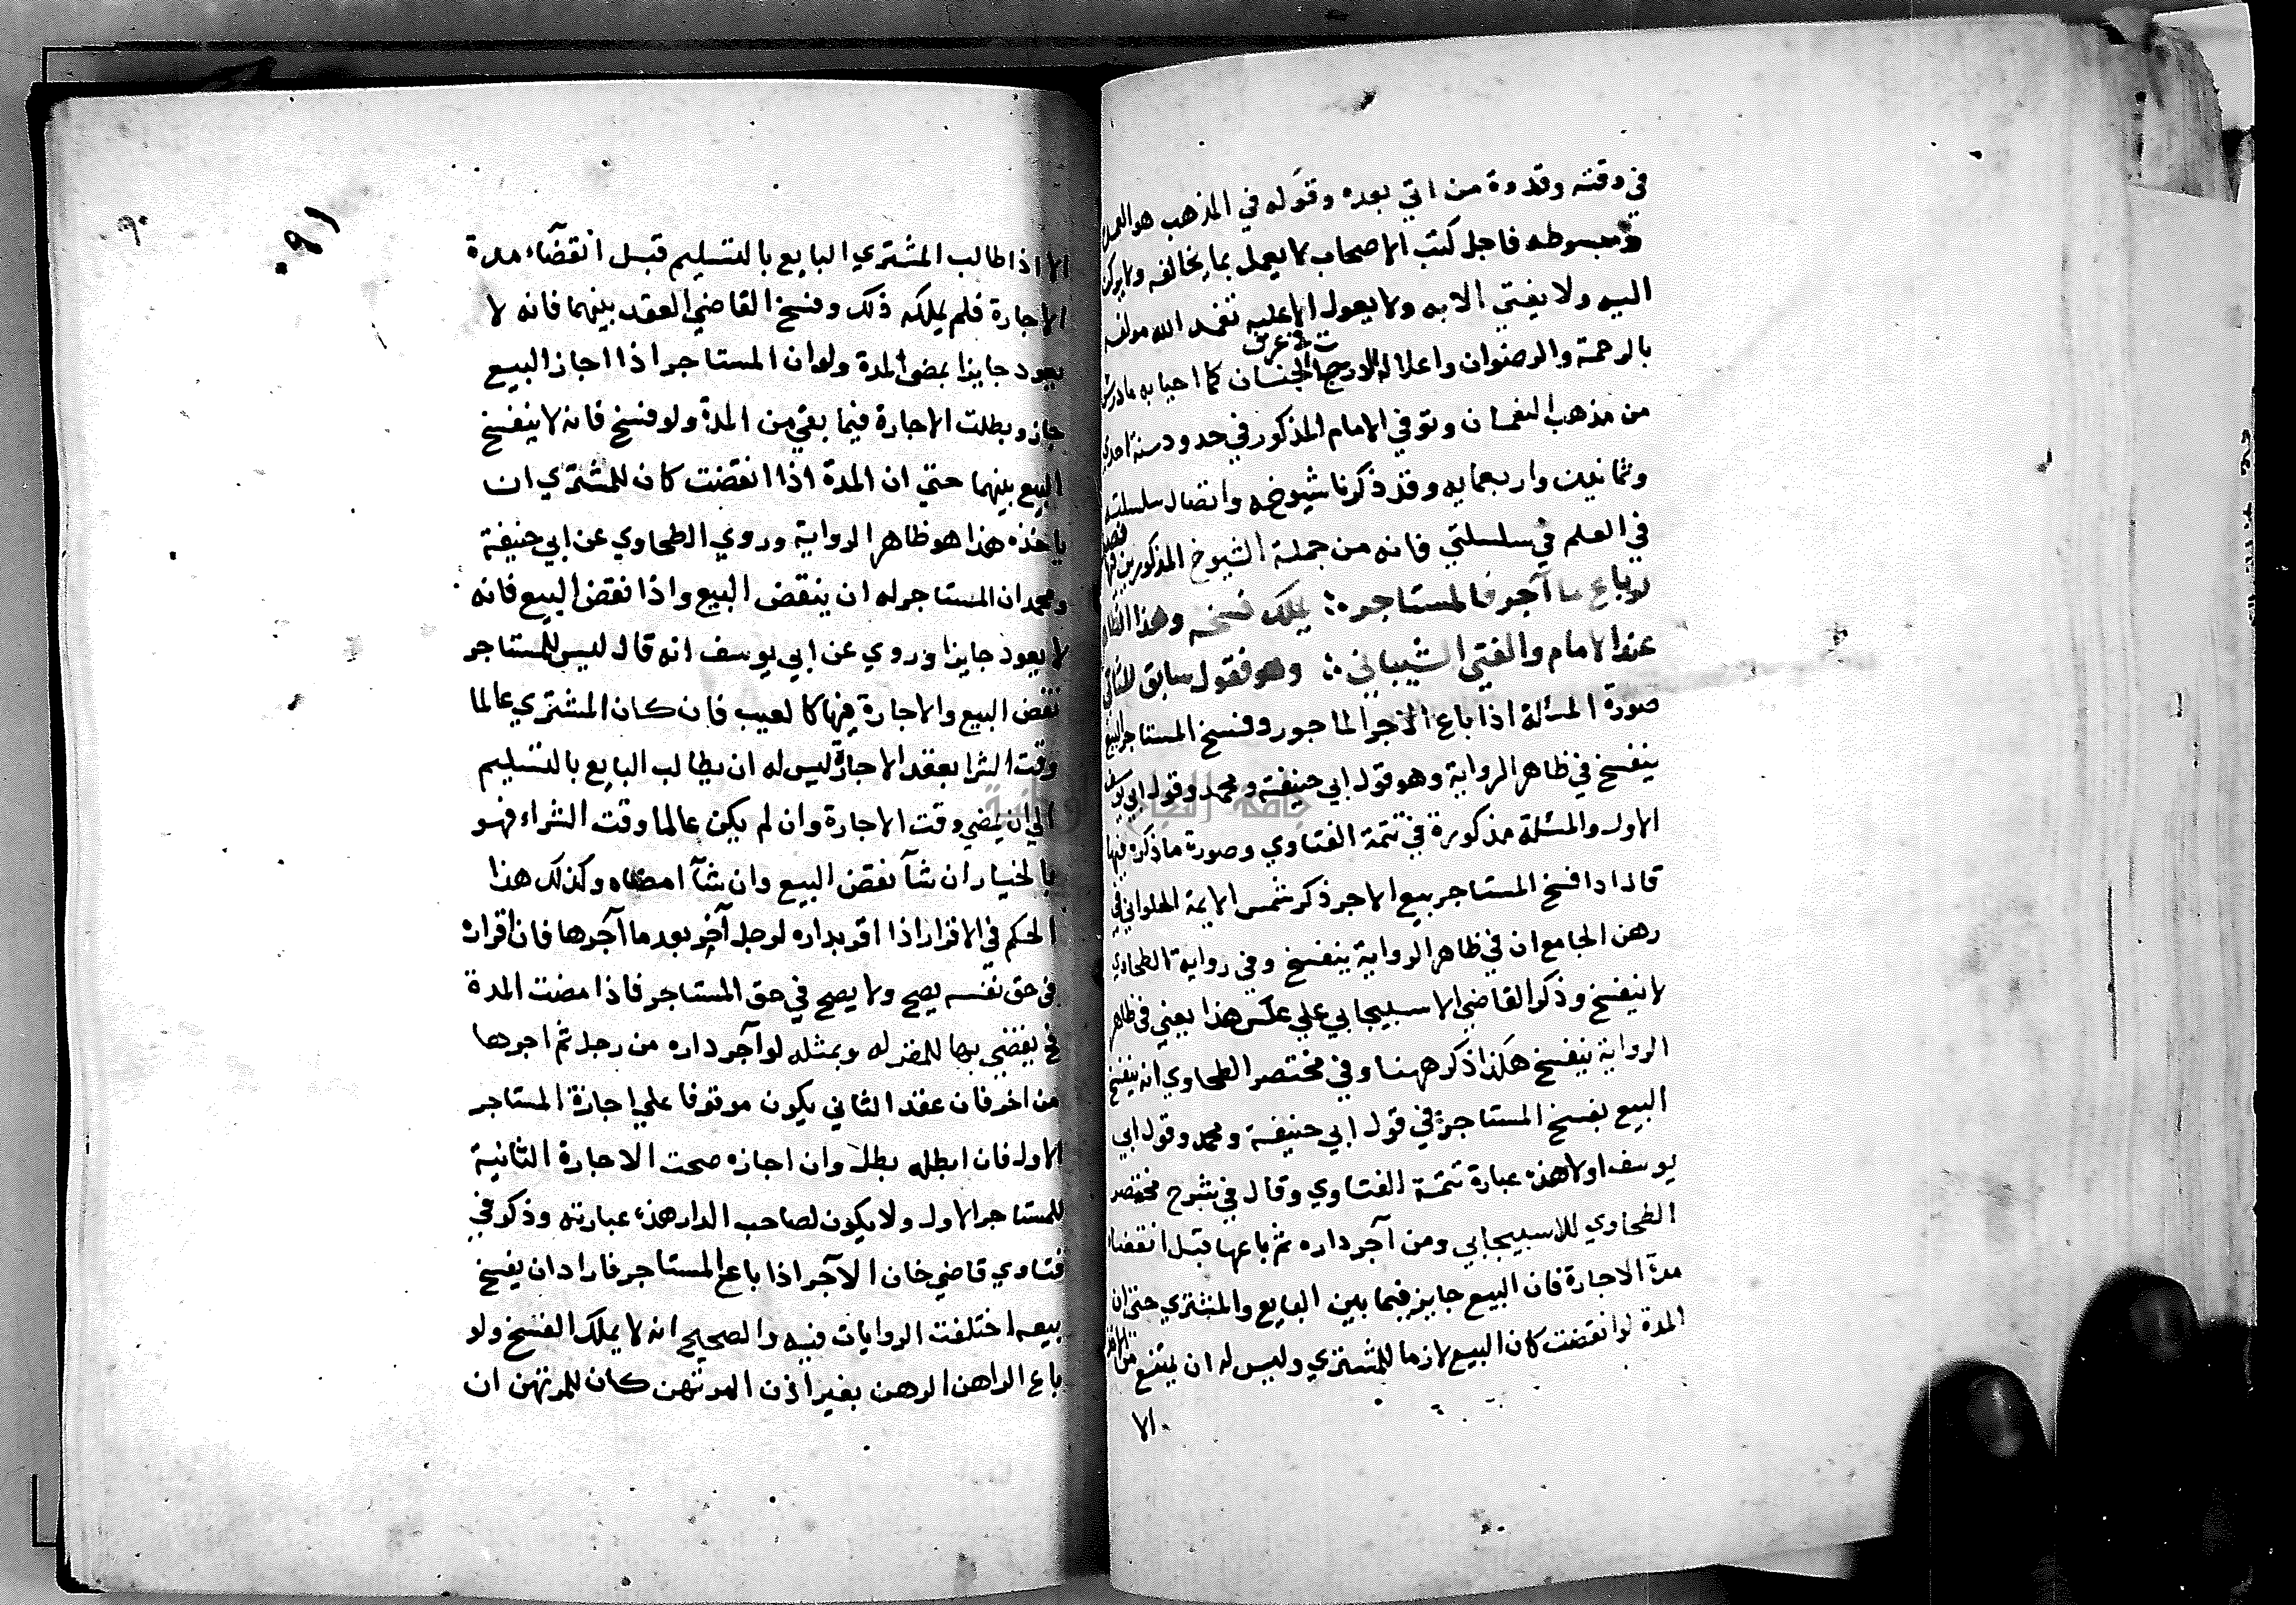 في وقته وقدوة من اتي بعده وقوله في المذهب هو العمدة
ومبسوطه فاجل كتب الاصحاب لا يعمل بما يخالفه ولا يركن
اليه ولا يفتي الا به ولا يعول الا عليه تغمد الله مولفه
بالرحمة والرضوان واعلا له الدرجات في غرف الجنان كما احيا به ما درس
من مذهب النعمان وتوفي الامام المذكور في حدود سنة احدي
وثمانين واربعمايه وقد ذكرنا شيوخه واتصال سلسلته
في العلم في سلسلتي فانه من جملة الشيوخ المذكورين فيها
لو باع ما آجر فالمستاجر ؞ يملك فسخه وهذا الظاهر
عند الامام والفتي الشيباني ؞ وهو فقول سابق للثاني
صورة المسئلة اذا باع الآجر الماجور وفسخ المستاجر البيع
ينفسخ في ظاهر الرواية وهو قول ابي حنيفة ومحمد وقول ابي يوسف
الاول والمسئلة مذكورة في تتمة الفتاوي وصورة ما ذكره فيها
قال اذا فسخ المستاجر بيع الاجر ذكر شمس الايمة الحلواني في
رهن الجامع ان في ظاهر الرواية ينفسخ وفي رواية الطحاوي
لا ينفسخ وذكر القاضي الاسبيجابي علي عكس هذا يعني في ظاهر
الرواية ينفسخ هكذا ذكر ههنا وفي مختصر الطحاوي انه ينفسخ
البيع بفسخ المستاجر في قول ابي حنيفة ومحمد وقول ابي
يوسف اولا هذه عبارة تتمة الفتاوي وقال في شرح مختصر
الطحاوي للاسبيجابي ومن آجر داره ثم باعها قبل انقضاء
مدة الاجارة فان البيع جايز فيما بين البايع والمشتري حتي ان
المدة لو انقضت كان البيع لازما للمشتري وليس له ان يمتنع من الاخذ
الا
٩٠
٩١
الا اذا طالب المشتري البايع بالتسليم قبل انقضآء مدة
الاجارة فلم يملكه ذلك وفسخ القاضي العقد بينهما فانه لا
يعود جايزا بمضي المدة ولو ان المستاجر اذا اجاز البيع
جاز وبطلت الاجارة فيما بقي من المدة ولو فسخ فانه لا ينفسخ
البيع بينهما حتي ان المدة اذا انقضت كان للمشتري ان
ياخذه هذا هو ظاهر الرواية وروي الطحاوي عن ابي حنيفة
ومحمد ان المستاجر له ان ينقض البيع واذا نقض البيع فانه
لا يعود جايزا وروي عن ابي يوسف انه قال ليس للمستاجر
نقض البيع والاجارة فيها كالعيب فان كان المشتري عالما
وقت الشرا بعقد الاجارة ليس له ان يطالب البايع بالتسليم
الي ان يمضي وقت الاجارة وان لم يكن عالما وقت الشراء فهو
بالخيار ان شآ نقض البيع وان شآ امضاه وكذلك هذا
الحكم في الاقرار اذا اقر بداره لرجل آخر بعد ما آجرها فان اقراره
في حق نفسه يصح ولا يصح في حق المستاجر فاذا مضت المدة
فح يقضي بها للمقر له وبمثله لو آجر داره من رجل ثم اجرها
من اخر فان عقد الثاني يكون موقوفا علي اجازة المستاجر
الاول فان ابطله بطل وان اجازه صحت الاجارة الثانية
للمستاجر الاول ولا يكون لصاحب الدار هذه عبارته وذكر في
فتاوي قاضي خان الآجر اذا باع المستاجر فاراد ان يفسخ
بيعه اختلفت الروايات فيه والصحيح انه لا يملك الفسخ ولو
باع الراهن الرهن بغير اذن المرتهن كان للمرتهن ان